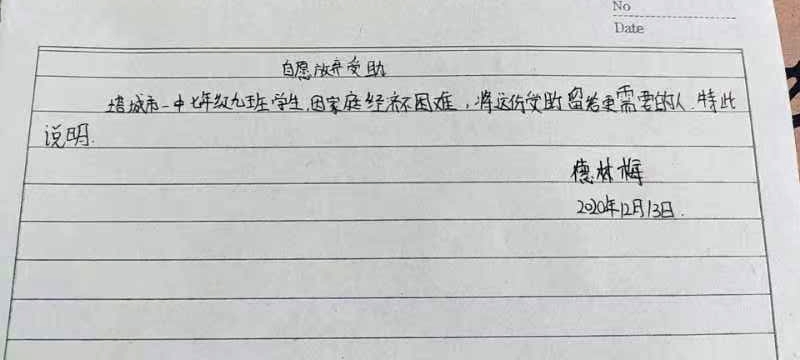 No
Date
自愿放弃受助
塔城市一中七年级九班学生,因家庭经济不困难,将这份受助留给更需要的人.特此
说明.
德林梅
2020年12月13日.